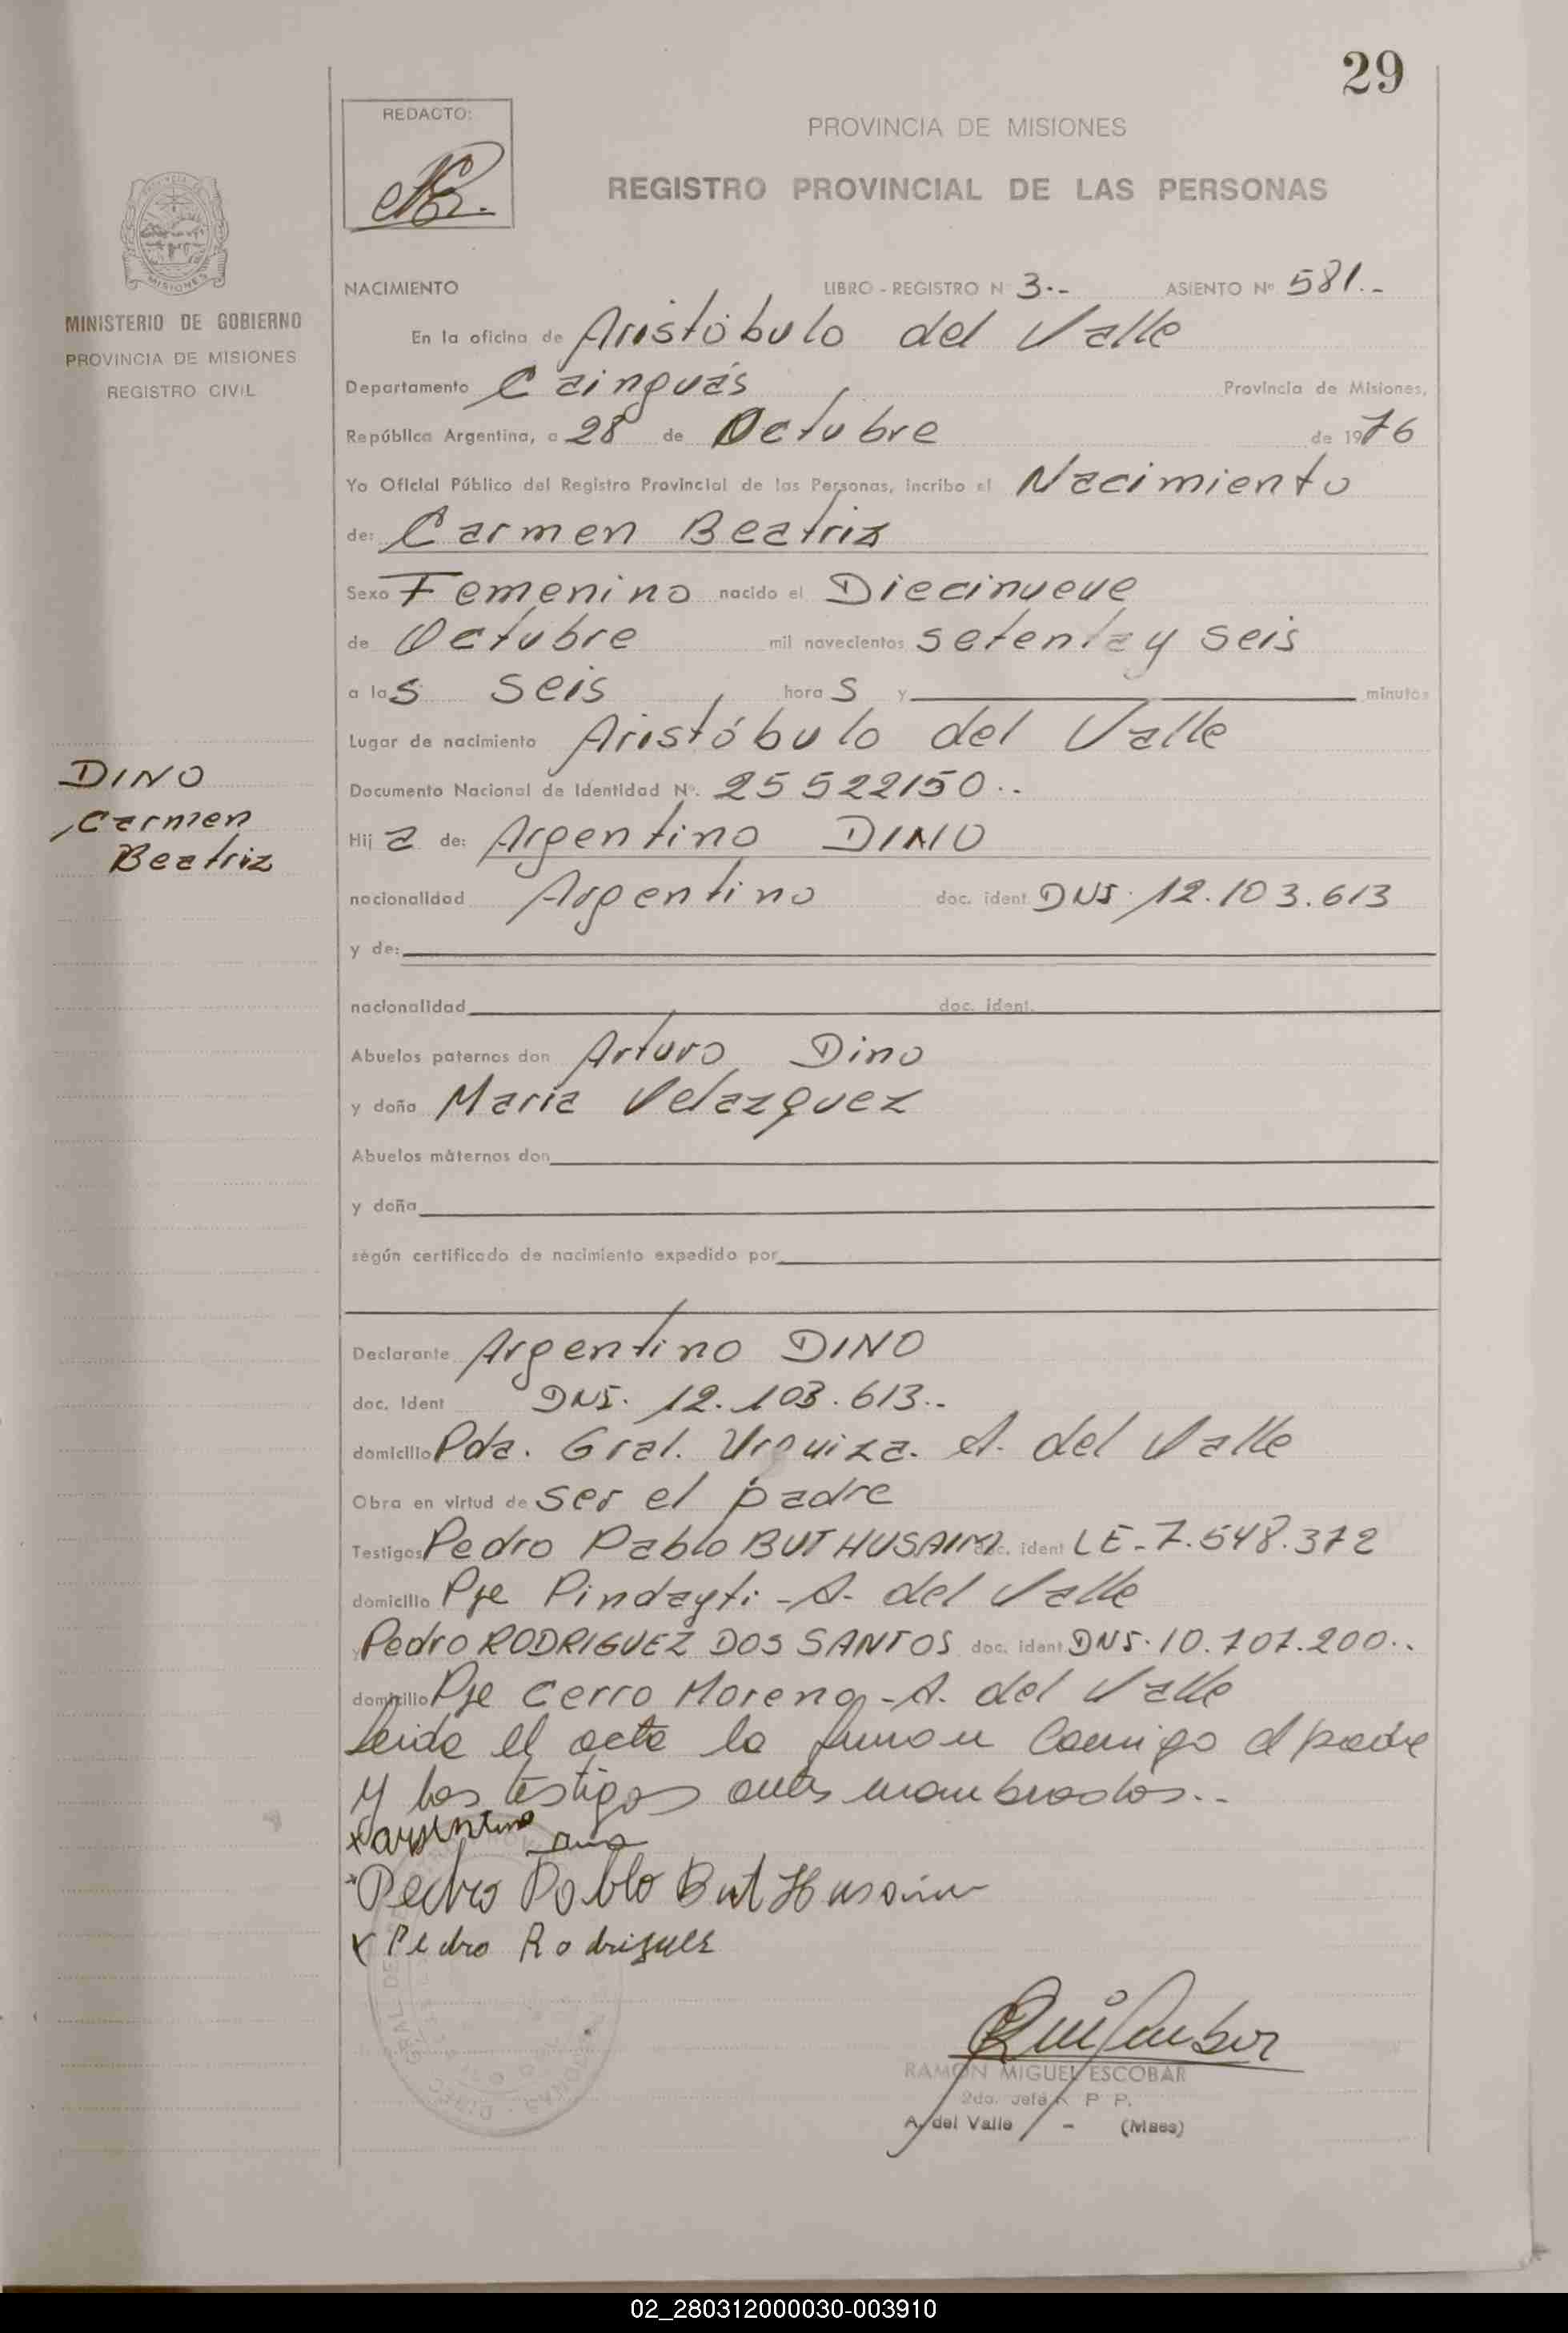 29
REDACTO:
PROVINCIA DE MISIONES
REGISTRO PROVINCIAL DE LAS PERSONAS
MISIONES
MINISTERIO DE GOBIERNO
PROVINCIA DE MISIONES
REGISTRO CIVIL
NACIMIENTO LIBRO - REGISTRO N 3.-- ASIENTO Nº 581.-
En la oficina de Aristóbulo del Valle
Departamento Cainguás Provincia de Misiones,
República Argentina, a 28 de Octubre de 1976
Yo Oficial Público del Registro Provincial de las Personas, incribo el Nacimiento
de: Carmen Beatriz
Sexo Femenino nacido el Diecinueve
de Octubre mil novecientos setenta y seis
a las seis horas y minutos
Lugar de nacimiento Aristóbulo del Valle
Documento Nacional de Identidad Nº. 25522150..
DINO
Carmen
Beatriz
Hija de: Argentino DINO
nacionalidad Argentino doc. ident DNI. 12.103.613
y de:
nacionalidad doc. ident.
Abuelos paternos don Arturo Dino
y doña María Velazquez
Abuelos máternos don
y doña
según certificado de nacimiento expedido por
Declarante Argentino DINO
doc. Ident DNI. 12.103.613..
domicilio Pda. Gral. Urquiza. A. del Valle
Obra en virtud de ser el padre
Testigos Pedro Pablo BUT HUSAIM doc. ident LE-7.548.372
domicilio Pje Pindayti - A. del Valle
y Pedro RODRIGUEZ DOS SANTOS doc. ident DNI. 10.707.200..
domicilio Pje Cerro Moreno - A. del Valle
Leida el acta la firman conmigo el padre
y los testigos antes nombrados..
x argentino dino
x Pedro Pablo But Husaim
x Pedro Rodriguez
RAMON MIGUEL ESCOBAR
2do. Jefe R P P.
A. del Valle - (Mnes)
02_280312000030-003910